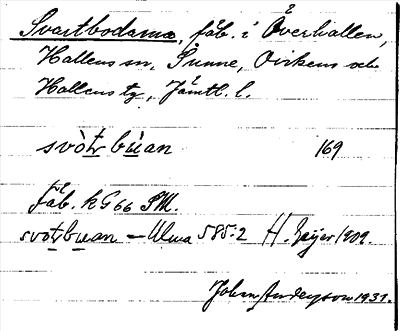 Svartbodarna, fäb. i Överhallen,
Hallens sn, Sunne, Ovikens och
Hallens tg, Jämtl. l.
svòtr bùan 169
Fäb. kG 66 SM.
svòtrbuan – Ulma 585:2 H. Geijer 1909.
Johan Anderson 1931.